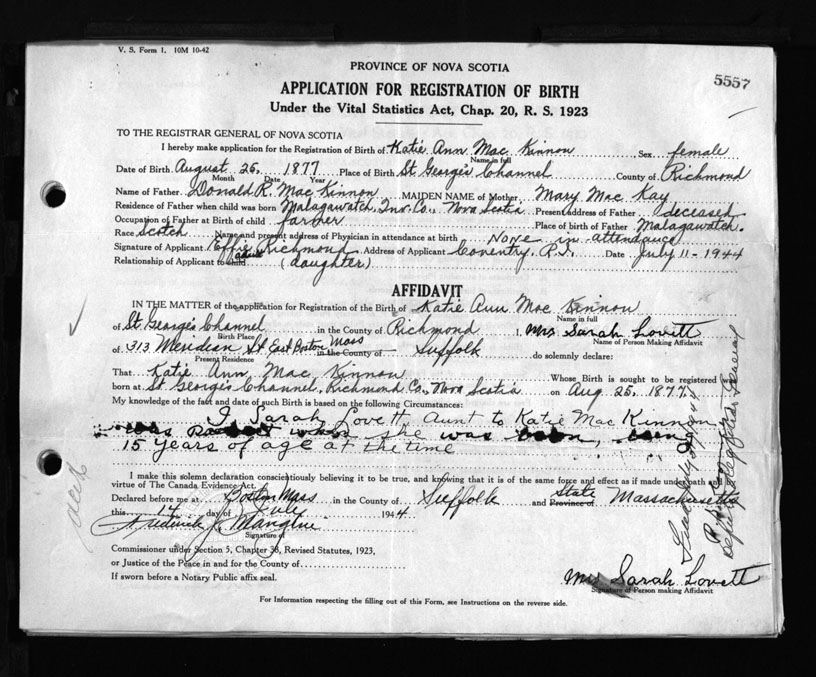 V. S. Form 1. 10M 10-42
PROVINCE OF NOVA SCOTIA
5557
APPLICATION FOR REGISTRATION OF BIRTH
Under the Vital Statistics Act, Chap. 20, R. S. 1923
TO THE REGISTRAR GENERAL OF NOVA SCOTIA
I hereby make application for the Registration of Birth of Katie Ann Mac Kinnon, Sex female
Name in full
Date of Birth August 25, 1877 Place of Birth St George's Channel County of Richmond
Month Date Year
Name of Father Donald R. Mac Kinnon MAIDEN NAME of Mother Mary Mac Kay
Residence of Father when child was born Malagawatch, Inv. Co., Nova Scotia Present address of Father deceased
Occupation of Father at Birth of child farmer Place of birth of Father Malagawatch.
Race Scotch Name and present address of Physician in attendance at birth None in attendance
Signature of Applicant Effie Richmond Address of Applicant Coventry, R.I. Date July 11-1944
Relationship of Applicant to Child (daughter)
AFFIDAVIT
IN THE MATTER of the application for Registration of the Birth of Katie Ann Mac Kinnon
Name in full
of St. George's Channel in the County of Richmond I, Mrs Sarah Lovett
Birth Place Name of Person Making Affidavit
of 313 Meridean St East Boston Mass in the County of Suffolk do solemnly declare:
Present Residence
That Katie Ann Mac Kinnon Whose Birth is sought to be registered
born at St George's Channel, Richmond Co., Nova Scotia on Aug 25, 1877.
My knowledge of the fact and date of such Birth is based on the following Circumstances:
I Sarah Lovett, Aunt to Katie Mac Kinnon
was when she was
15 years of age at the time
I make this solemn declaration conscientiously believing it to be true, and knowing that it is of the same force and effect as if made under oath and
virtue of The Canada Evidence Act.
Declared before me at Boston Mass in the County of Suffolk and Province of State Massachusetts
this 14 day of July 1944
Frederick J. Mangine
Signature of
Commissioner under Section 5, Chapter 38, Revised Statutes, 1923,
or Justice of the Peace in and for the County of
If sworn before a Notary Public affix seal.
Mrs Sarah Lovett
Signature of Person making Affidavit
For Information respecting the filling out of this Form, see Instructions on the reverse side.
Deputy Registrar General